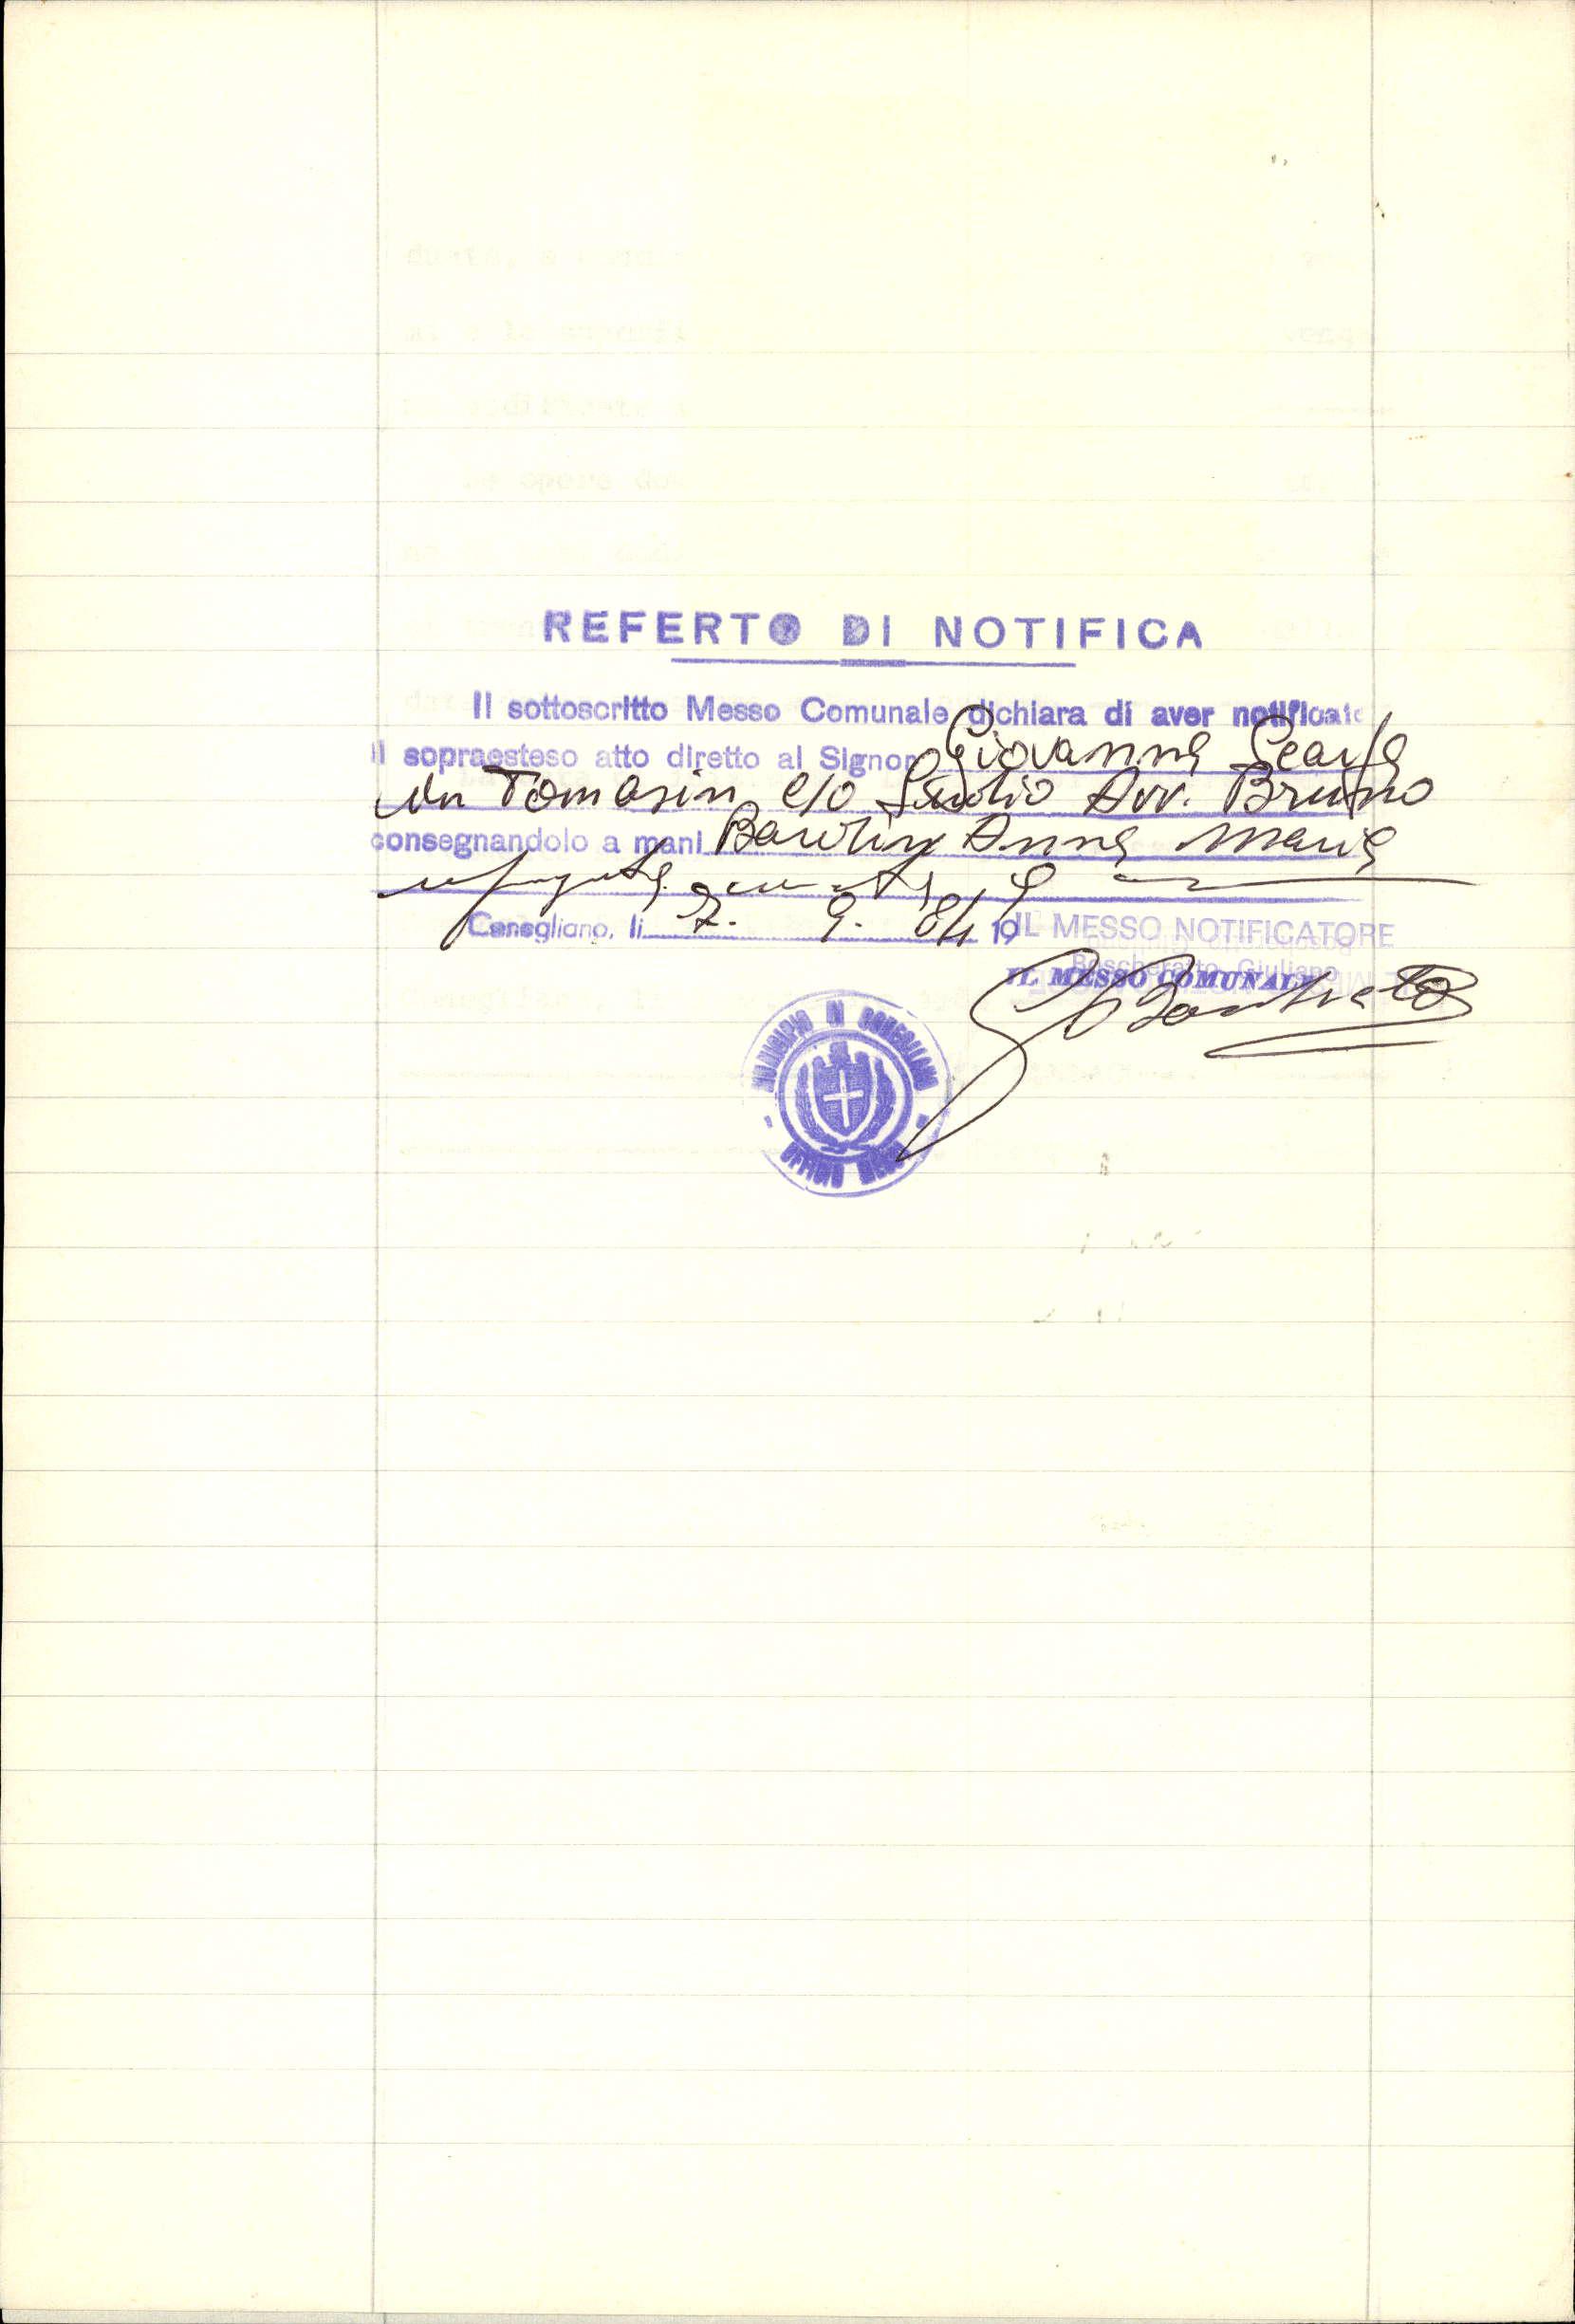 REFERTO DI NOTIFICA
Il sottoscritto Messo Comunale dichiara di aver notificato
il sopraesteso atto diretto al Signor Giovanna Scarfa
in Tomasin c/o Studio Avv. Bruno
consegnandolo a mani Anna Maria
Conegliano, li 7. 9. 84 19
IL MESSO NOTIFICATORE
Boscheratto Giuliano
IL MESSO COMUNALE
MUNICIPIO DI CONEGLIANO
UFFICIO MESSI